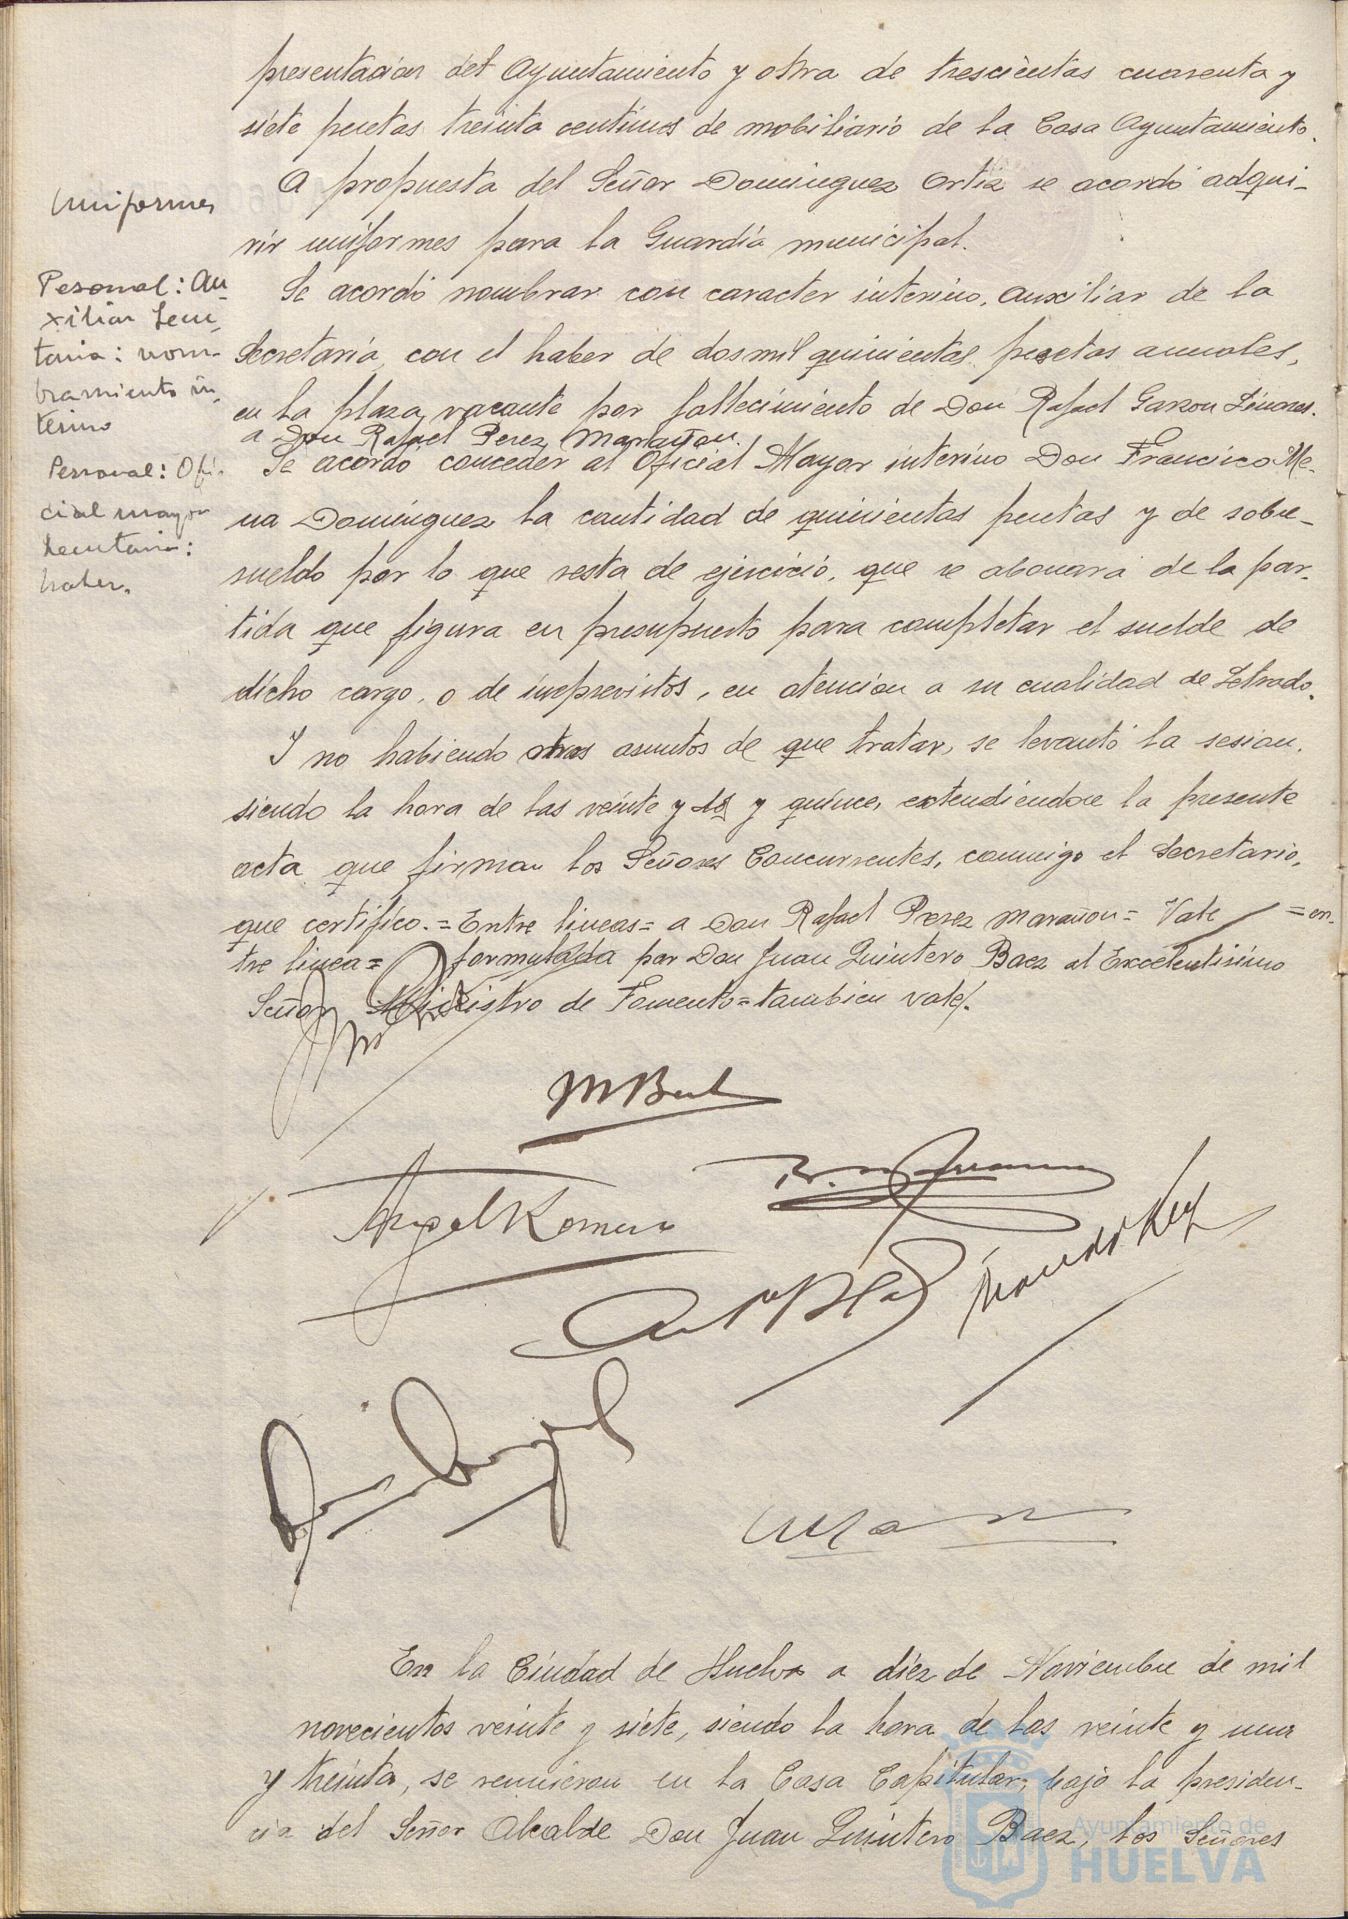 presentación del Ayuntamiento y otra de trescientas cuarenta y
siete pesetas treinta centimos de mobiliario de la Casa Ayuntamiento.
Uniformes
A propuesta del Señor Dominguez Ortiz se acordó adqui-
rir uniformes para la Guardia municipal.
Pesonal: Au-
xiliar Secre-
taria: nom-
bramiento in-
terino
Se acordó nombrar con caracter interino, auxiliar de la
Secretaría, con el haber de dosmil quinientas pesetas anuales,
en la plaza vacante por fallecimiento de Don Rafael Garzon Linares.
a Don Rafael Perez Marañon.
Personal: Ofi-
cial mayor
Secretaria:
haber.
Se acordó conceder al Oficial Mayor interino Don Francisco Me-
na Dominguez la cantidad de quinientas pesetas y de sobre-
sueldo por lo que resta de ejercicio, que se abonará de la par-
tida que figura en presupuesto para completar el sueldo de
dicho cargo, o de imprevistos, en atencion a su cualidad de Letrado.
Y no habiendo otros asuntos de que tratar, se levantó la sesion,
siendo la hora de las veinte y dos y quince, extendiendose la presente
acta que firman los Señores Concurrentes, conmigo el Secretario,
que certifico.=Entre lineas= a Don Rafael Perez Marañon= Vale =en-
tre linea= formulada por Don Juan Quintero Baez al Excelentisimo
Señor Ministro de Fomento=tambien vale.
Angel Romero
En la Ciudad de Huelva a diez de Noviembre de mil
novecientos veinte y siete, siendo la hora de las veinte y una
y treinta, se reunieron en la Casa Capitular, bajo la presiden-
cia del Señor Alcalde Don Juan Quintero Baez, los Señores
Ayuntamiento de
HUELVA